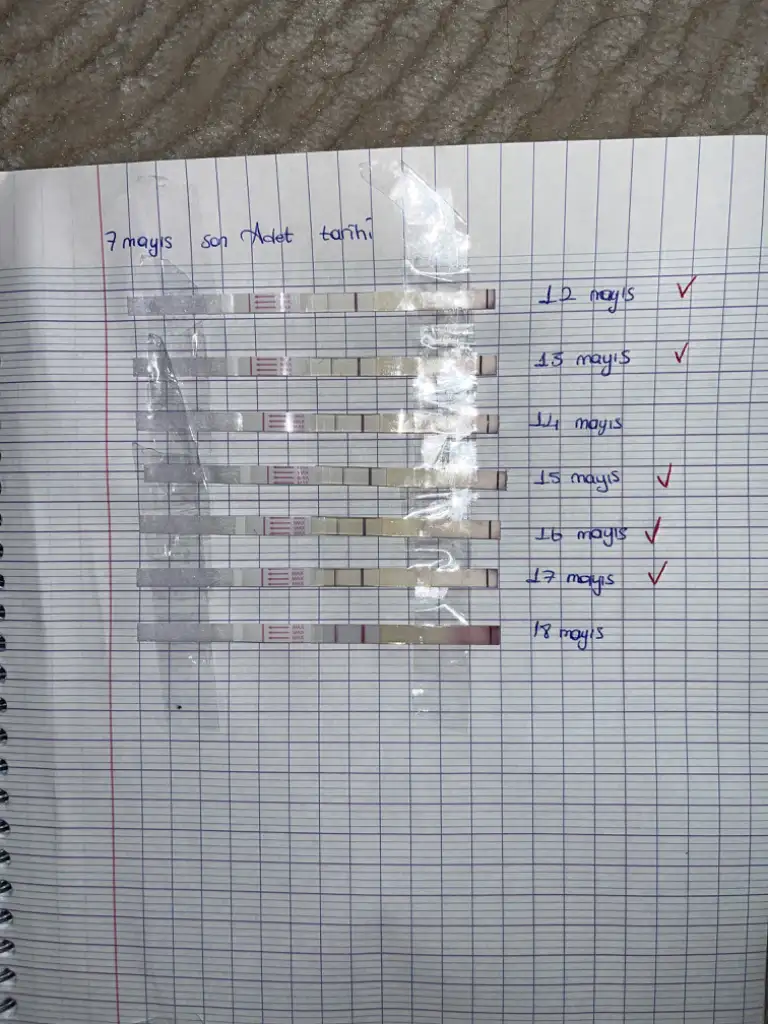 7 mayıs son Adet tarihi
12 mayıs ✓
13 mayıs ✓
14 mayıs
15 mayıs ✓
16 mayıs ✓
17 mayıs ✓
18 mayıs